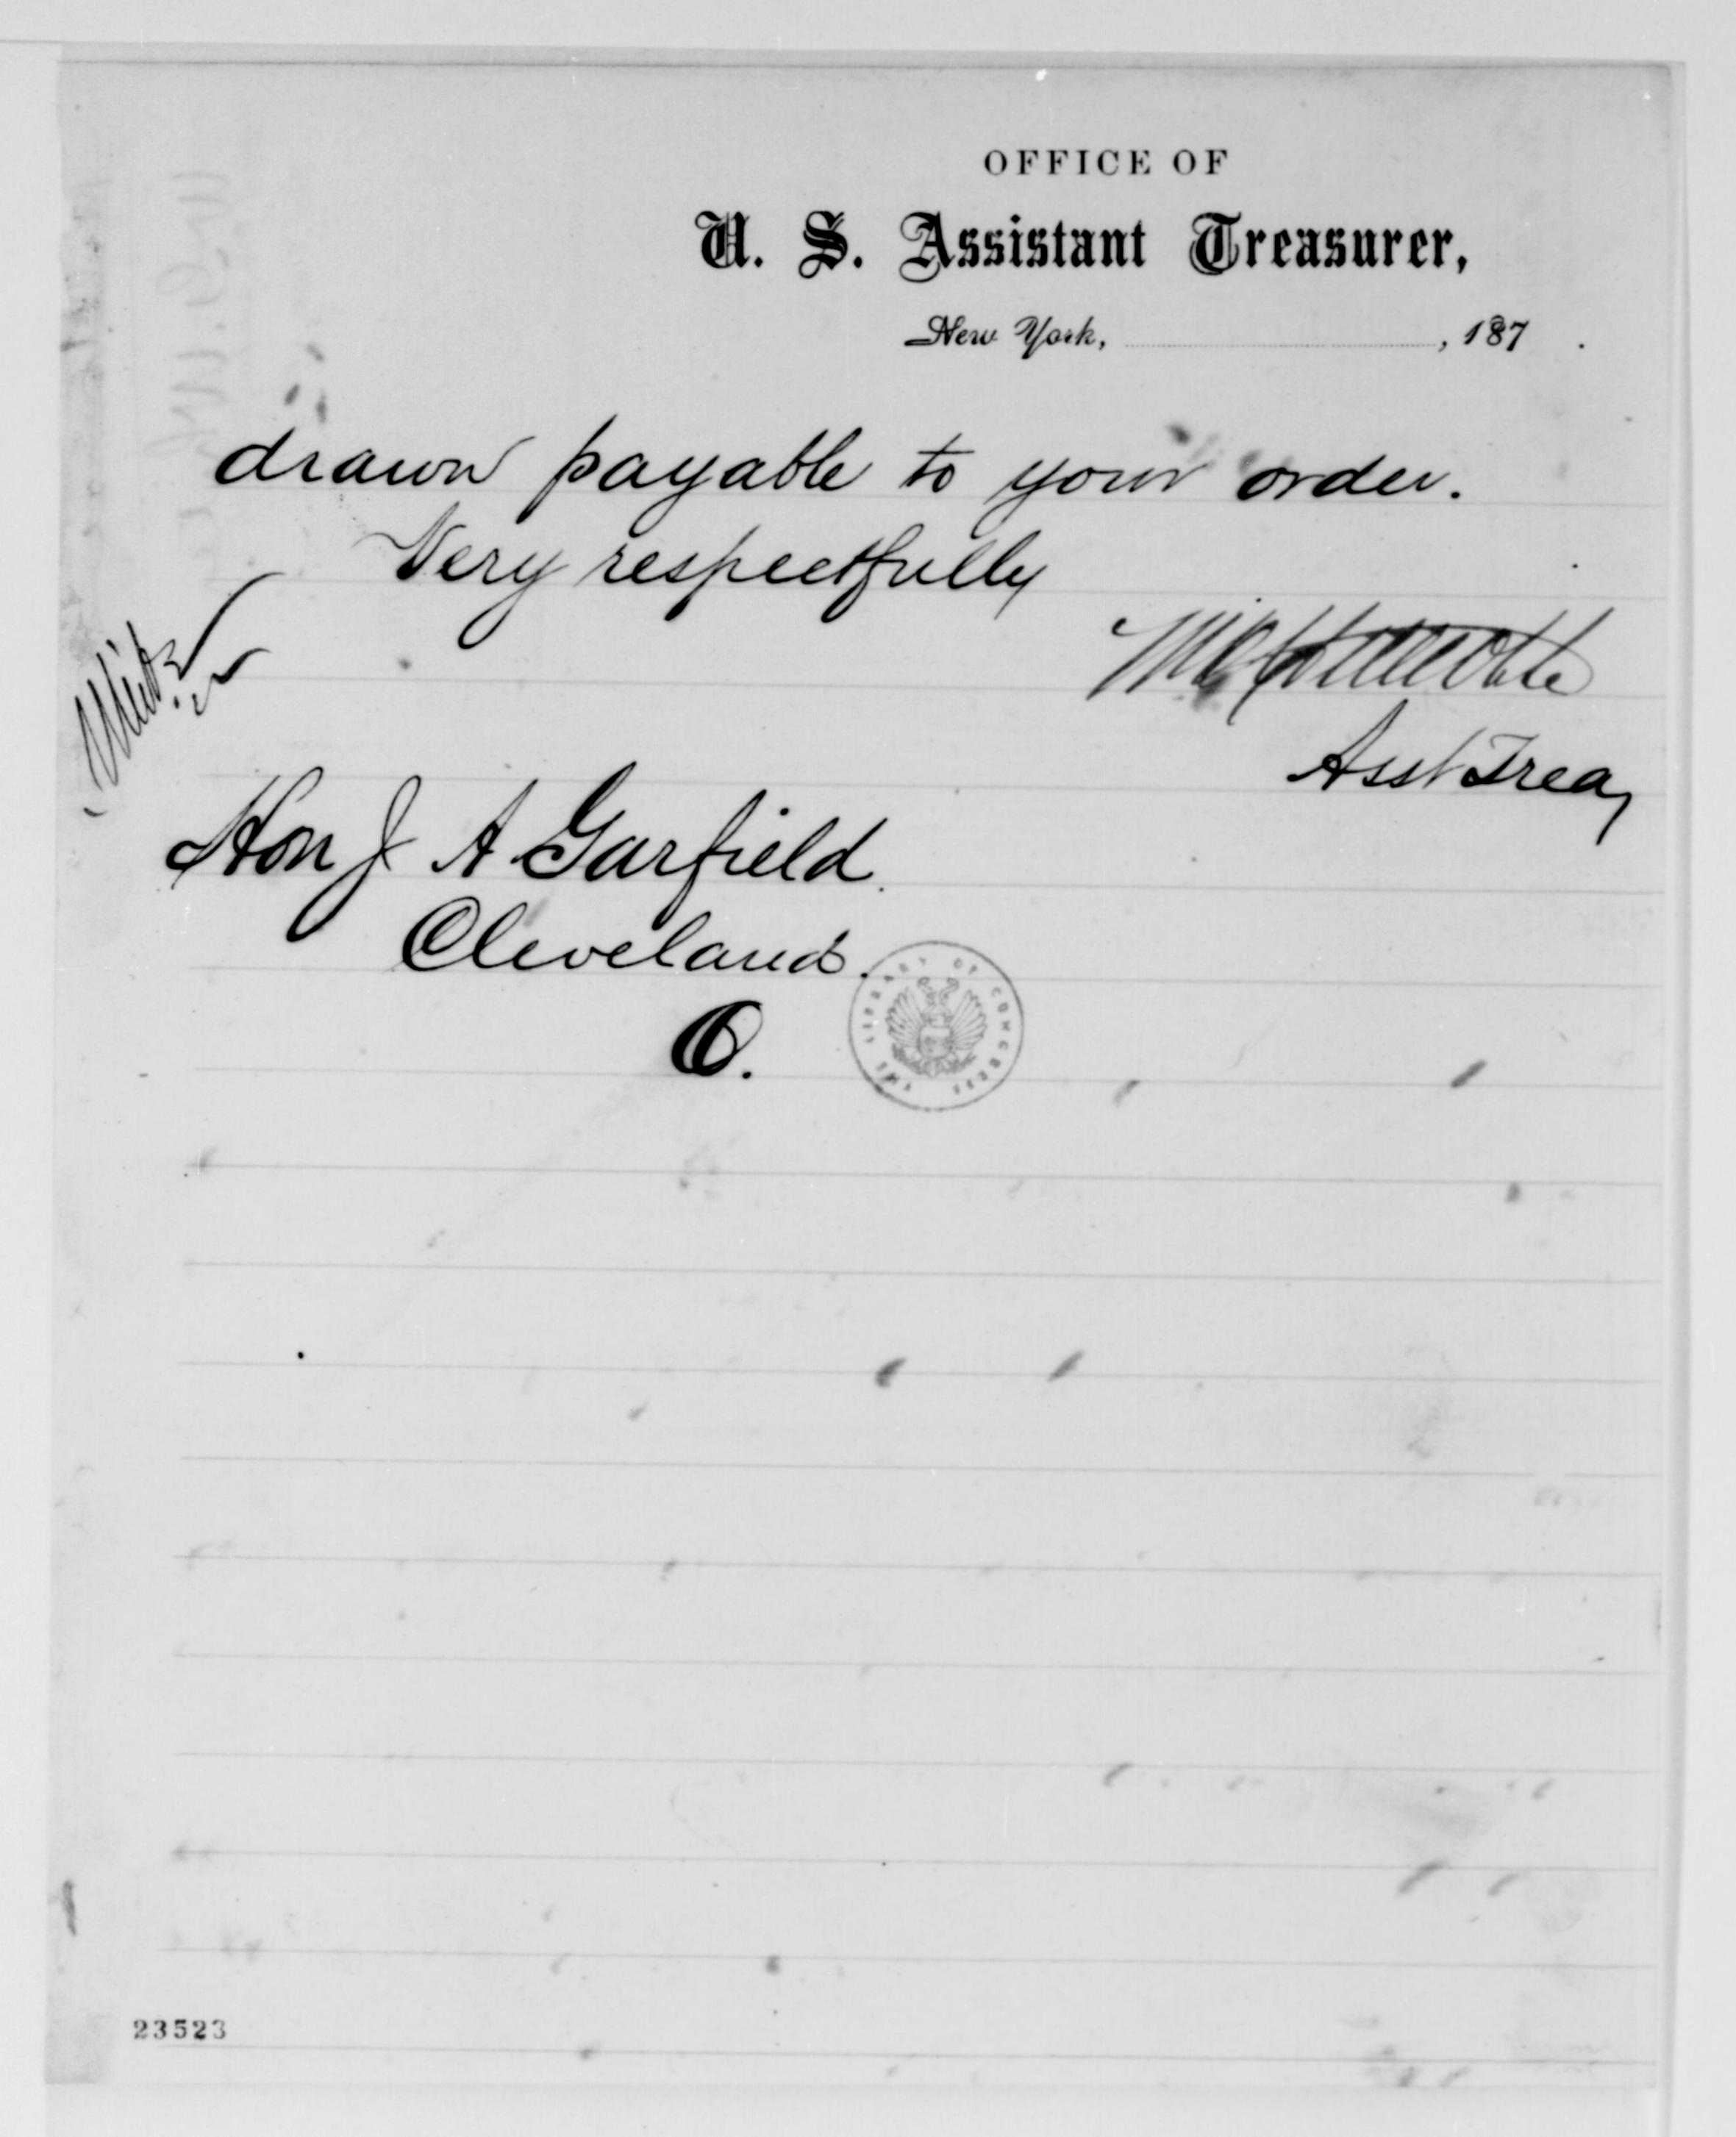 OFFICE OF
U. S. Assistant Treasurer,
New York, , 187 .
drawn payable to your order.
Very respectfully
Asst Treas
Hon J A Garfield.
Cleveland.
O.
THE LIBRARY OF CONGRESS
23523